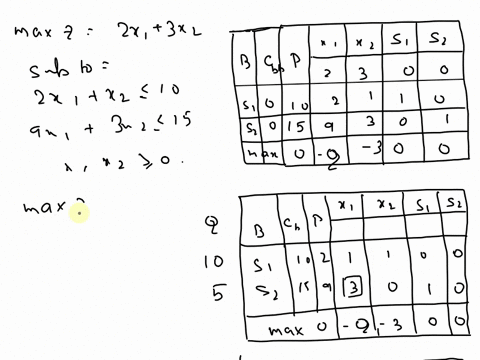 max z = 2x₁ + 3x₂
sub to =
2x₁ + x₂ ≤ 10
9x₁ + 3x₂ ≤ 15
x₁ x₂ ≥ 0.
max z
B Cb P x₁ x₂ S₁ S₂
2 3 0 0
S₁ 0 10 2 1 1 0
S₂ 0 15 9 3 0 1
max 0 -2 -3 0 0
Q B Cb P x₁ x₂ S₁ S₂
10 S₁ 10 2 1 1 0 0
5 S₂ 15 9 3 0 1 0
max 0 -2, -3 0 0